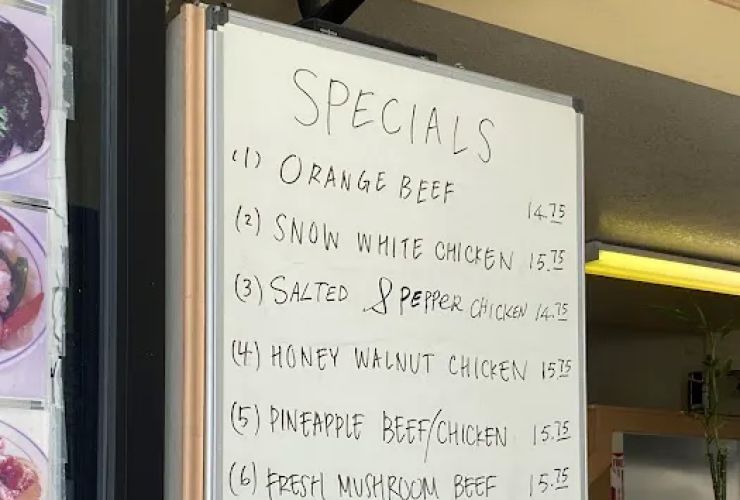 SPECIALS
(1) ORANGE BEEF 14.75
(2) SNOW WHITE CHICKEN 15.75
(3) SALTED & PEPPER CHICKEN 14.75
(4) HONEY WALNUT CHICKEN 15.75
(5) PINEAPPLE BEEF/CHICKEN 15.75
(6) FRESH MUSHROOM BEEF 15.75